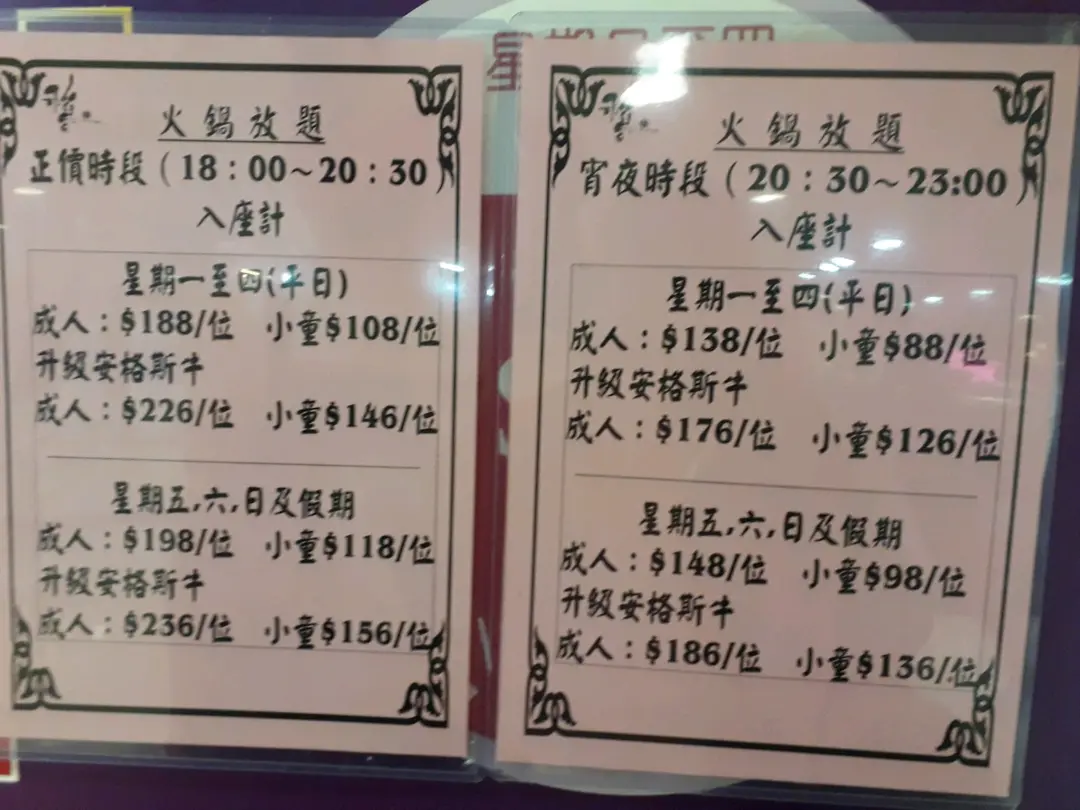 星期日至四
火鍋放題
正價時段（18：00～20：30）
入座計
星期一至四(平日)
成人：$188/位 小童$108/位
升級安格斯牛
成人：$226/位 小童$146/位
星期五,六,日及假期
成人：$198/位 小童$118/位
升級安格斯牛
成人：$236/位 小童$156/位
火鍋放題
宵夜時段（20：30～23:00）
入座計
星期一至四(平日)
成人：$138/位 小童$88/位
升級安格斯牛
成人：$176/位 小童$126/位
星期五,六,日及假期
成人：$148/位 小童$98/位
升級安格斯牛
成人：$186/位 小童$136/位